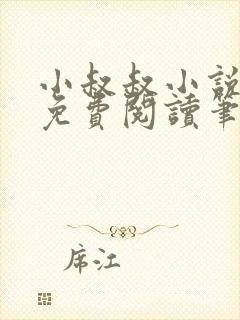 小叔叔小說
免費閱讀筆
席江